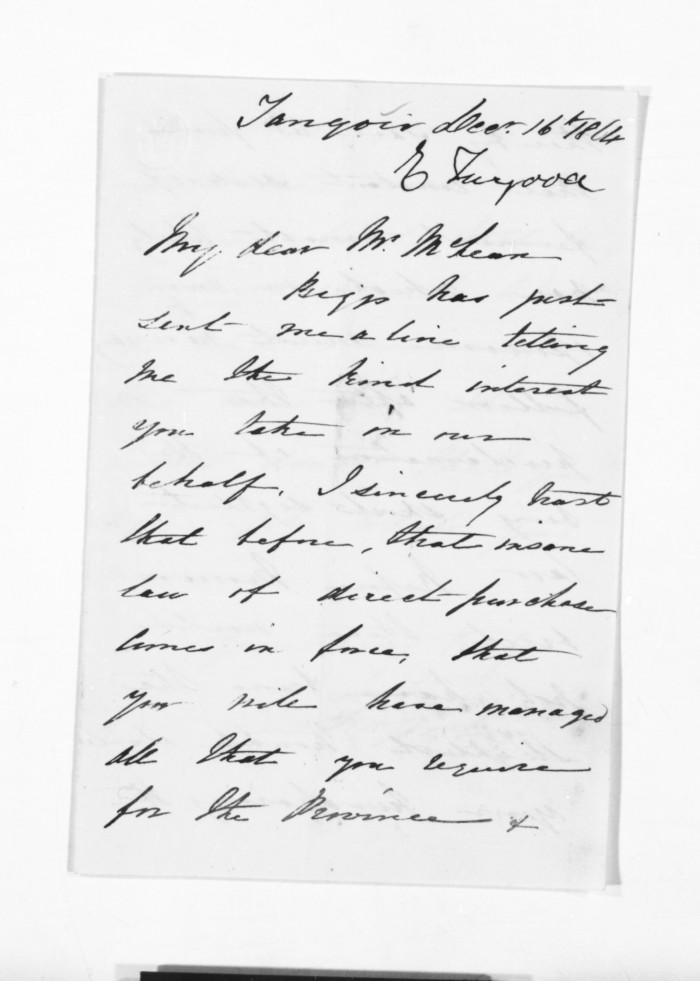 Tangoio Decr. 16th 1864
E Tugood
My dear Mr. McLean
Biggs has just
sent me a line telling
me the kind interest
you take in our
behalf. I sincerely trust
that before, that insane
law of direct purchase
comes in force, that
you will have managed
all that you require
for the Province &